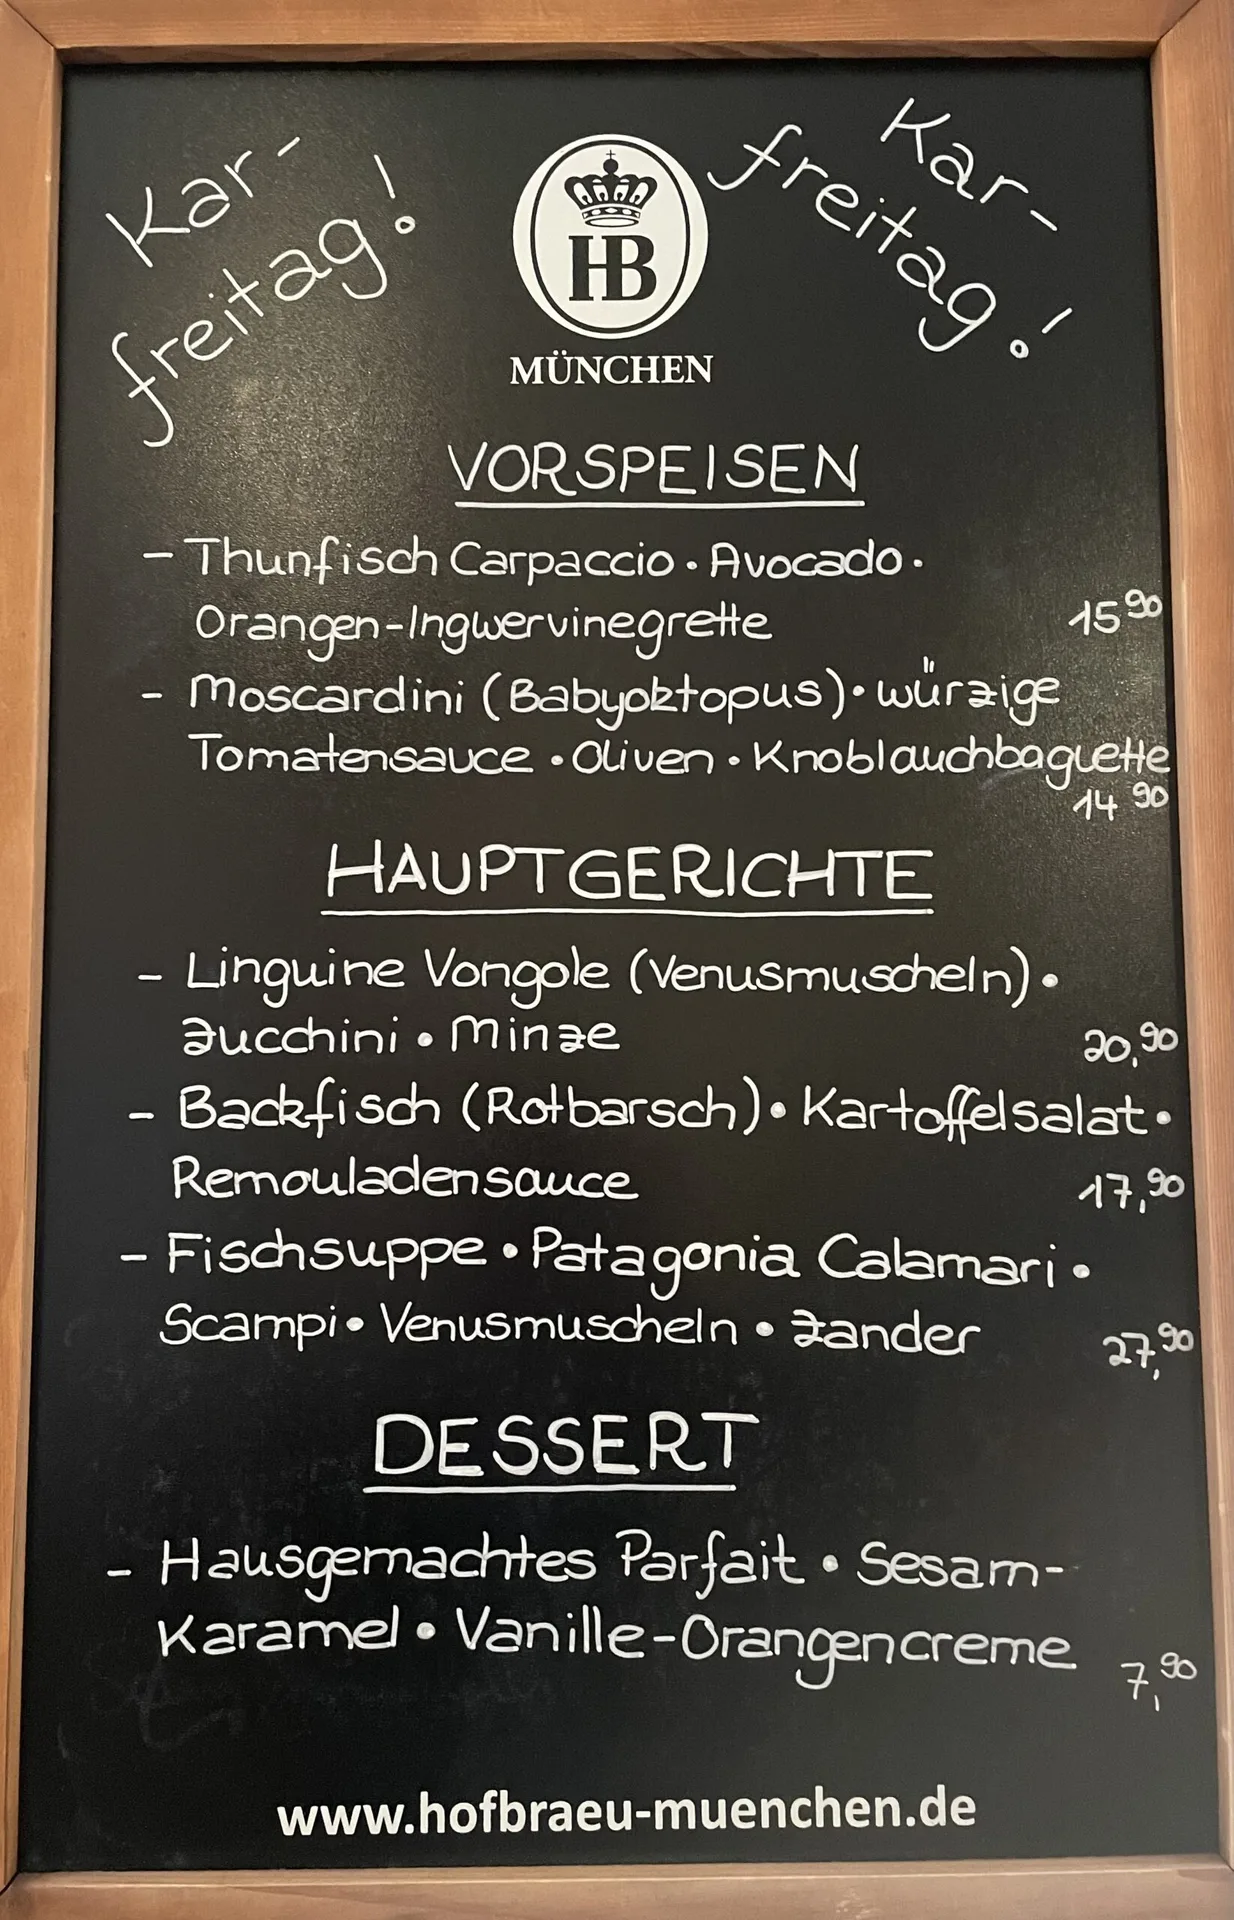 Kar-
freitag!
Kar-
freitag!
HB
MÜNCHEN
VORSPEISEN
- Thunfisch Carpaccio · Avocado ·
Orangen-Ingwervinegrette 15 90
- Moscardini (Babyoktopus) · würzige
Tomatensauce · Oliven · Knoblauchbaguette
14 90
HAUPTGERICHTE
- Linguine Vongole (Venusmuscheln) ·
Zucchini · Minze 20,90
- Backfisch (Rotbarsch) · Kartoffelsalat ·
Remouladensauce 17,90
- Fischsuppe · Patagonia Calamari ·
Scampi · Venusmuscheln · Zander 27,90
DESSERT
- Hausgemachtes Parfait · Sesam-
Karamel · Vanille-Orangencreme 7,90
www.hofbraeu-muenchen.de